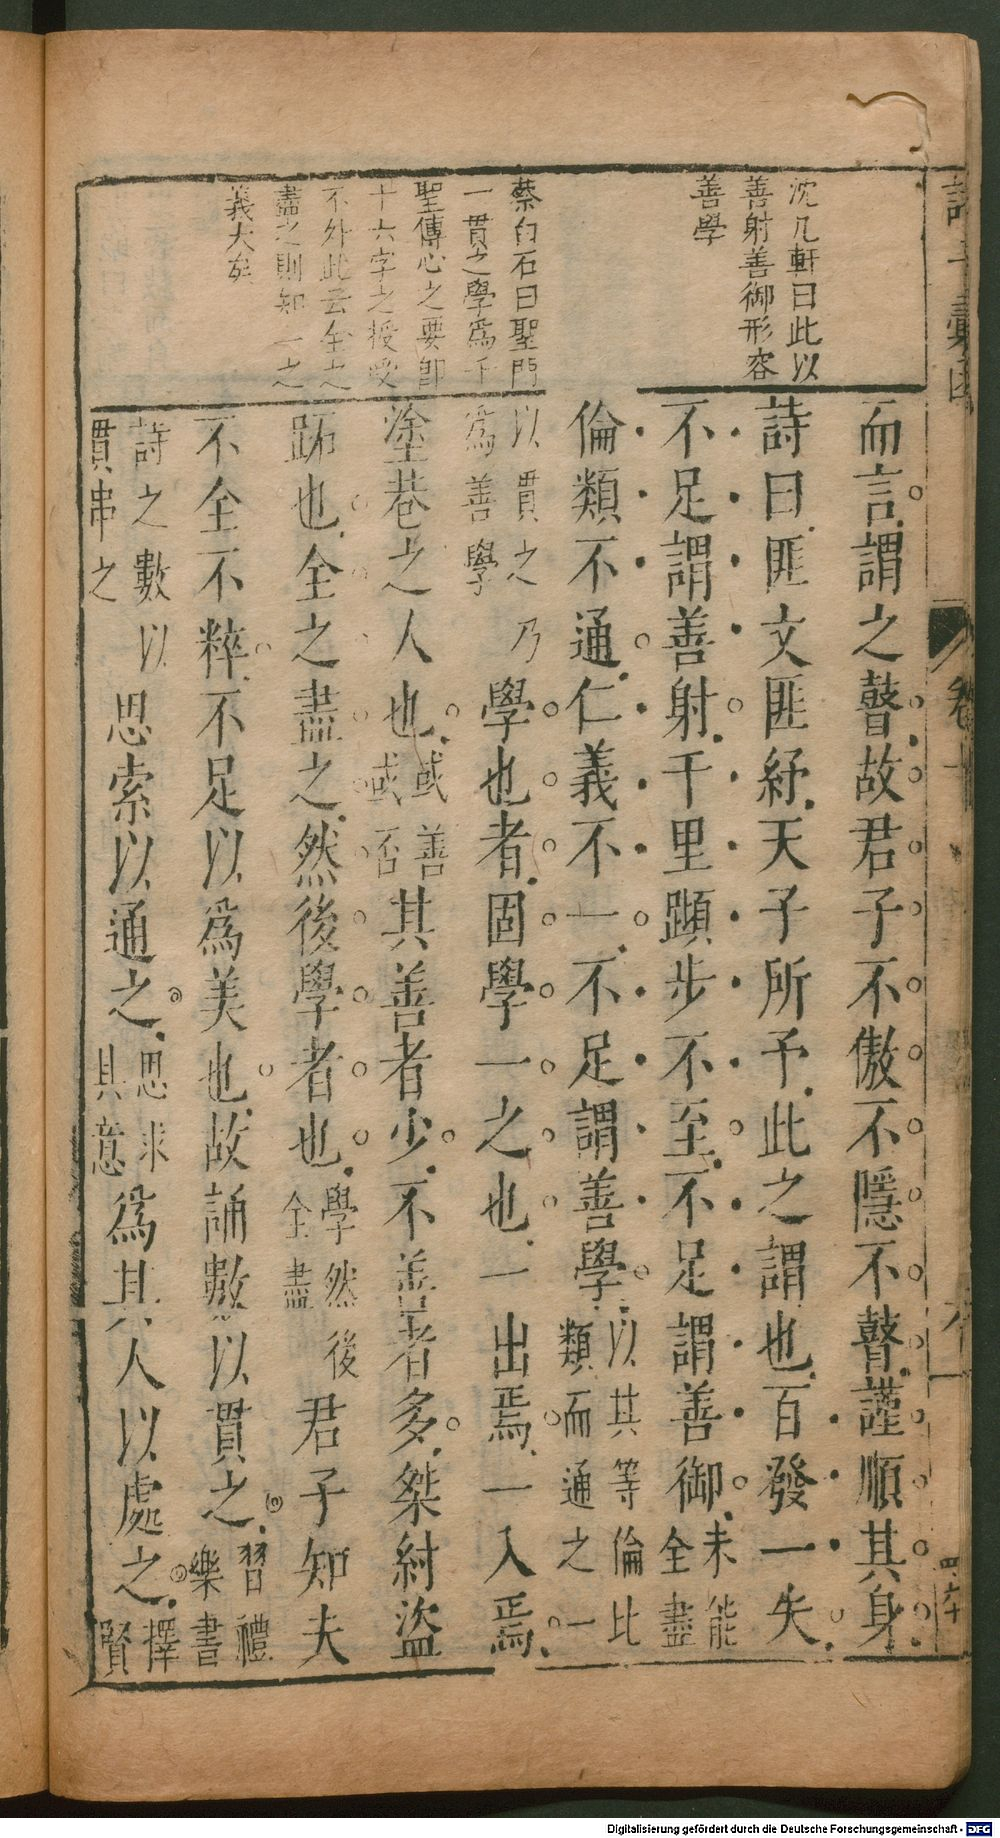 沈几軒曰此以
善射善御形容
善學
蔡白石曰聖門
一貫之學為千
聖傳心之要即
十六字之授受
不外此云全之
盡之則知一之
義大矣
而言謂之瞽故君子不傲不隱不瞽謹順其身
詩曰匪文匪紓天子所予此之謂也百發一失
不足謂善射千里蹞步不至不足謂善御未能全盡
倫類不通仁義不一不足謂善學以其等倫比類而通之一
以貫之乃為善學學也者固學一之也一出焉一入焉
塗巷之人也或善或否其善者少不善者多桀紂盜
跖也全之盡之然後學者也學然後全盡君子知夫
不全不粹不足以為美也故誦數以貫之習禮樂書
詩之數以貫串之思索以通之思求其意為其人以處之擇賢
卷十
四六十
Digitalisierung gefördert durch die Deutsche Forschungsgemeinschaft - DFG